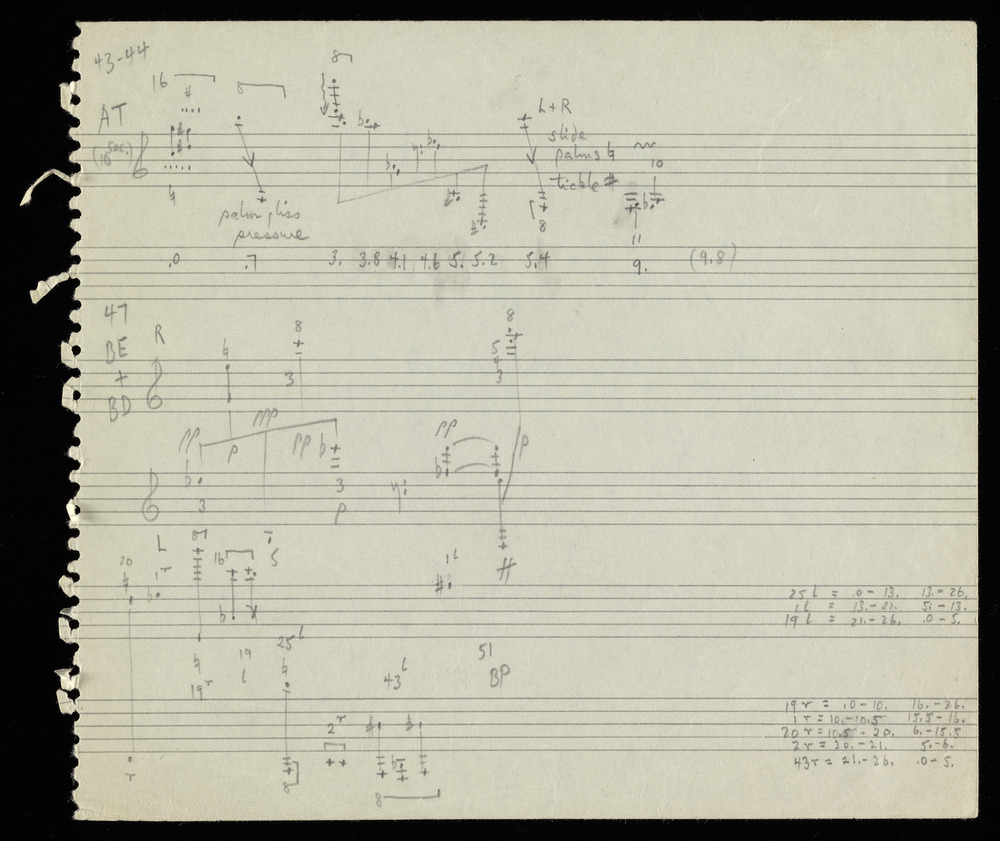 43-44
16
8
8
AT
(10 sec.)
L+R
slide
palms ♮
tickle #
10
palm gliss
pressure
8
11
.0 .7 3. 3.8 4.1 4.6 5. 5.2 5.4 9. (9.8)
47
BE
+
BD
R
8
8
3
5
3
ppp
pp
p
pp
pp
p
3
3
p
L
8
16
5
20
1 r
1 L
25 l = .0 - 13. 13. - 26.
1 l = 13. - 21. 5. - 13.
19 l = 21. - 26. .0 - 5.
25 l
19 r
19 l
43 l
51
BP
2 r
19 r = .0 - 10. 16. - 26.
1 r = 10. - 10.5 15.5 - 16.
20 r = 10.5 - 20. 6. - 15.5
2 r = 20. - 21. 5. - 6.
43 r = 21. - 26. .0 - 5.
r
8
8